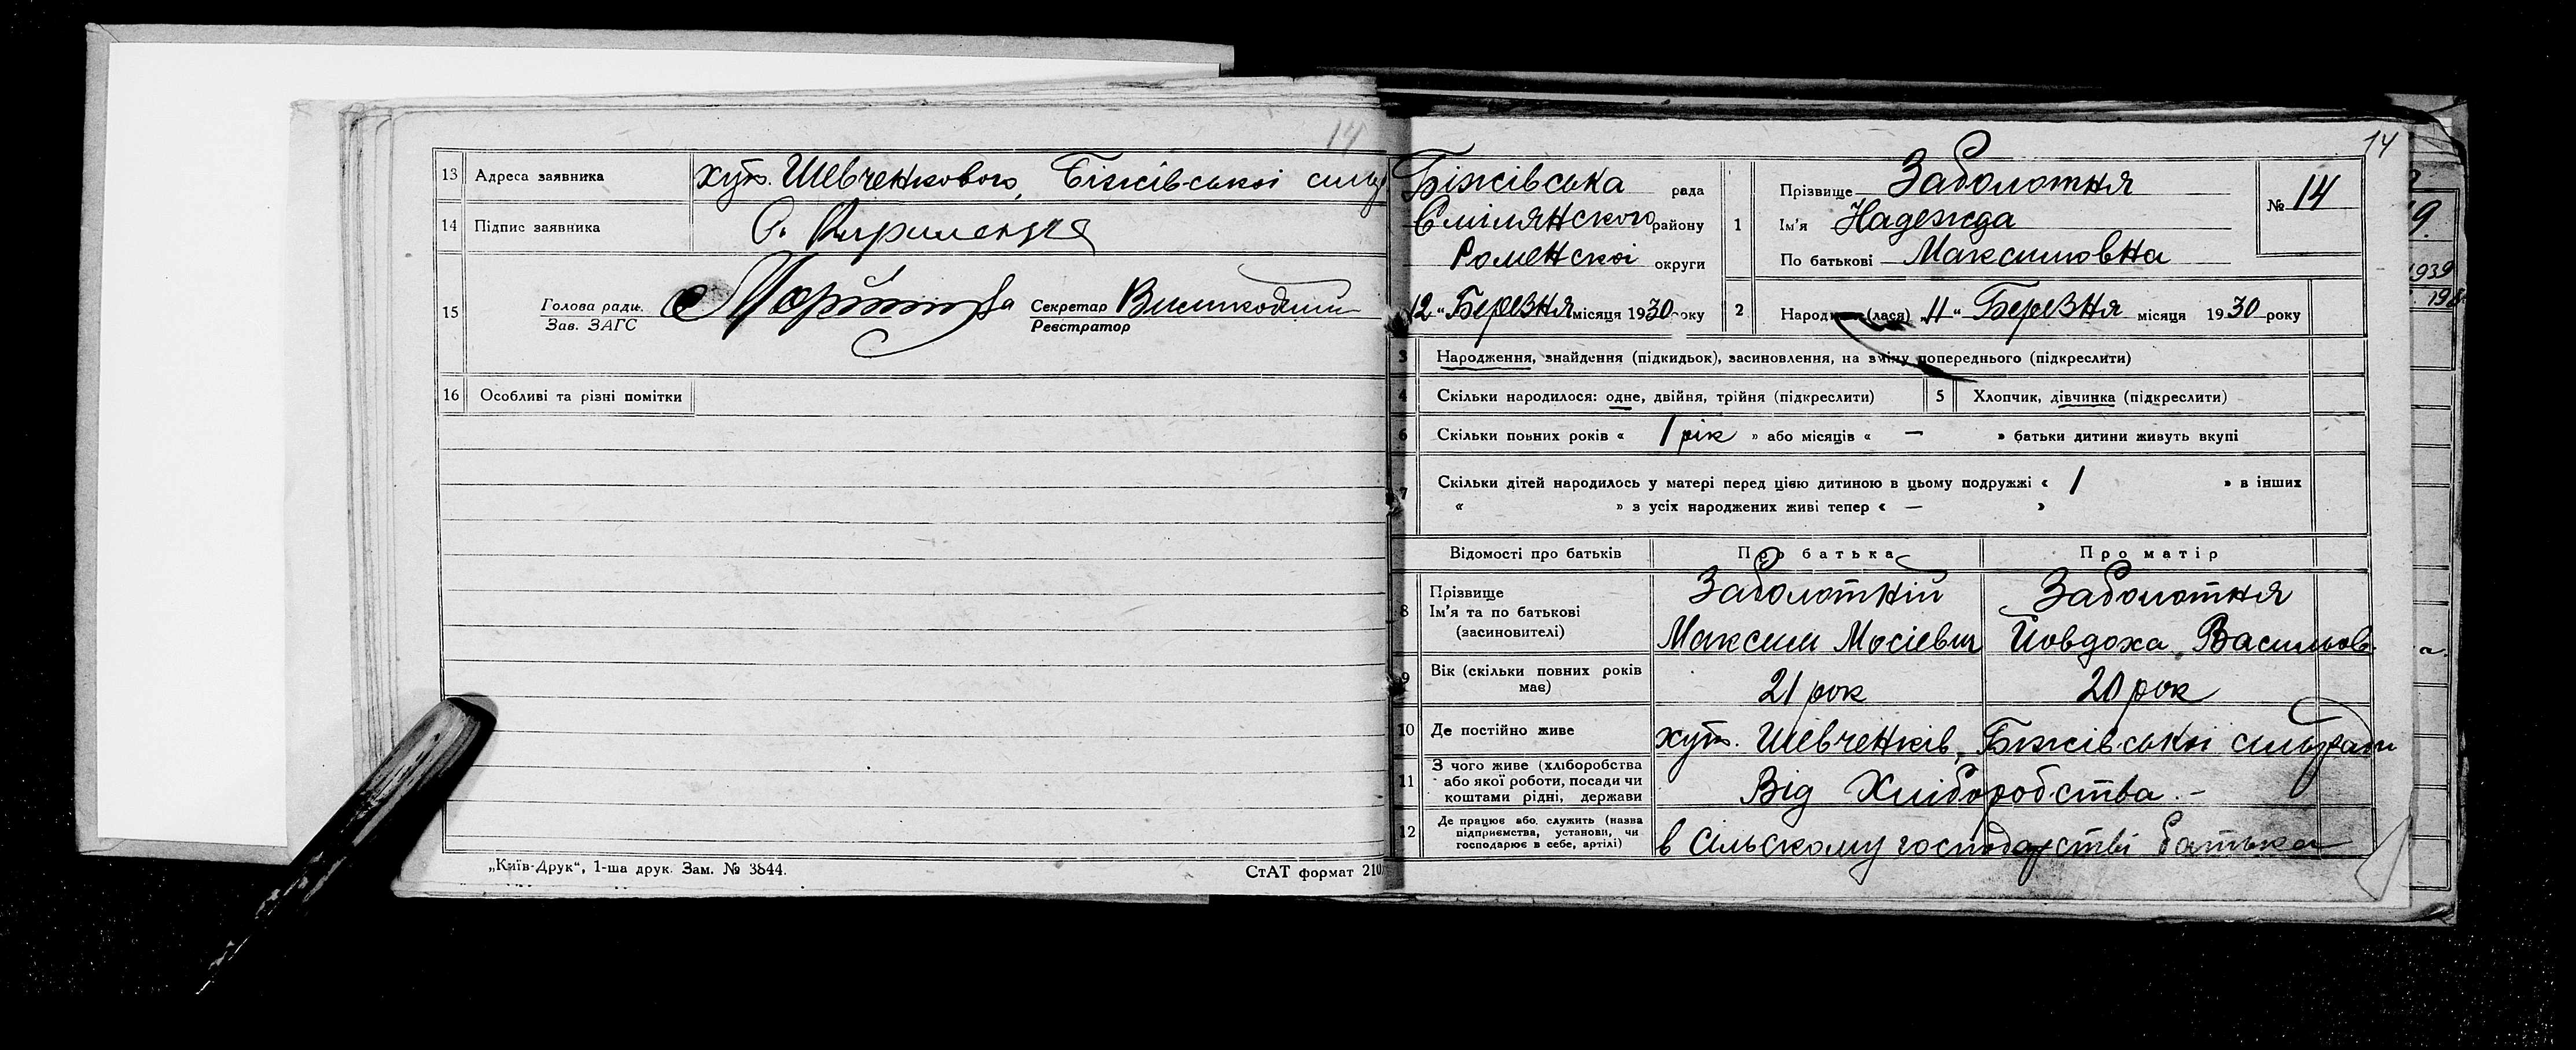 14
13 Адреса заявника хут. Шевченкового, Біжівської
14 Підпис заявника О. Кириленка
15 Голова ради Секретар
Зав. ЗАГС Реєстратор
16 Особливі та різні помітки
„Київ-Друк“, 1-ша друк. Зам. № 3844. СтАТ формат 210
14
Біжівська рада
Смілянского району
Роменскої округи
12 „ Березня місяця 1930 року
1 Прізвище Заболотня
Ім'я Надежда
По батькові Максимовна
№ 14
2 Народи (лася) „11“ Березня місяця 1930 року
3 Народження, знайдення (підкидьок), засиновлення, на зміну попереднього (підкреслити)
4 Скільки народилося: одне, двійня, трійня (підкреслити) 5 Хлопчик, дівчинка (підкреслити)
6 Скільки повних років « 1 рік » або місяців « — » батьки дитини живуть вкупі
7 Скільки дітей народилось у матері перед цією дитиною в цьому подружжі « 1 » в інших
« » з усіх народжених живі тепер « — »
Відомості про батьків Про батька Про матір
8 Прізвище Заболотній Заболотня
Ім'я та по батькові
(засиновителі) Максим Мосієвич Йовдоха Васильов
9 Вік (скільки повних років
має) 21 рок 20 рок
10 Де постійно живе хут. Шевченків, Біжівської сільради
11 З чого живе (хліборобства
або якої роботи, посади чи
коштами рідні, держави Від Хліборобства. –
12 Де працює або служить (назва
підприємства, установи, чи
господарює в себе, артілі) в Сільскому господарстві батька
9.
1939